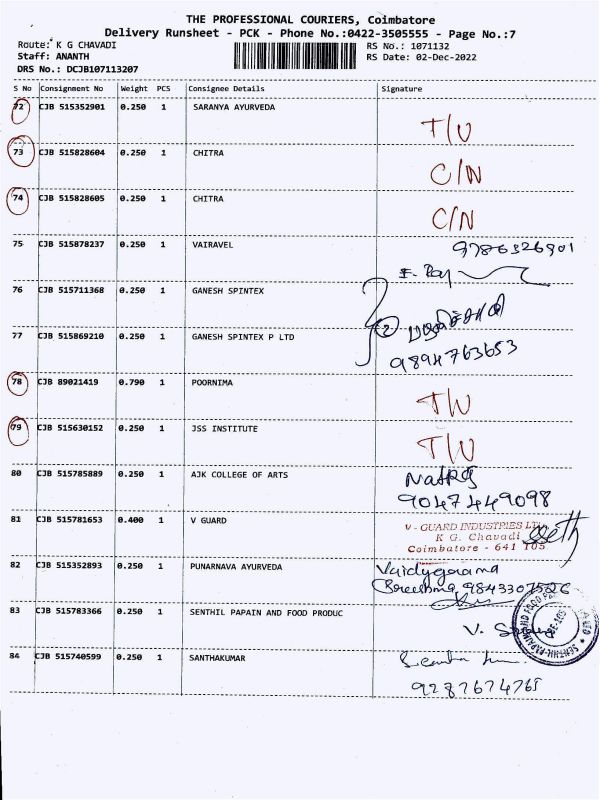 THE PROFESSIONAL COURIERS, Coimbatore
Delivery Runsheet - PCK - Phone No.:0422-3505555 - Page No.:7
Route: K G CHAVADI RS No.: 1071132
Staff: ANANTH RS Date: 02-Dec-2022
DRS No.: DCJB107113207
S No Consignment No Weight PCS Consignee Details Signature
72 CJB 515352901 0.250 1 SARANYA AYURVEDA T/U
73 CJB 515828604 0.250 1 CHITRA C/N
74 CJB 515828605 0.250 1 CHITRA C/N
75 CJB 515878237 0.250 1 VAIRAVEL 9786326901
76 CJB 515711368 0.250 1 GANESH SPINTEX
77 CJB 515869210 0.250 1 GANESH SPINTEX P LTD 2
9894763653
78 CJB 89021419 0.790 1 POORNIMA T/U
79 CJB 515630152 0.250 1 JSS INSTITUTE T/U
80 CJB 515785889 0.250 1 AJK COLLEGE OF ARTS
9047449098
81 CJB 515781653 0.400 1 V GUARD V - GUARD INDUSTRIES LTD
K G. Chavadi
Coimbatore - 641 105
82 CJB 515352893 0.250 1 PUNARNAVA AYURVEDA Vaidyagrama
9843307526
83 CJB 515783366 0.250 1 SENTHIL PAPAIN AND FOOD PRODUC
84 CJB 515740599 0.250 1 SANTHAKUMAR
9287674765